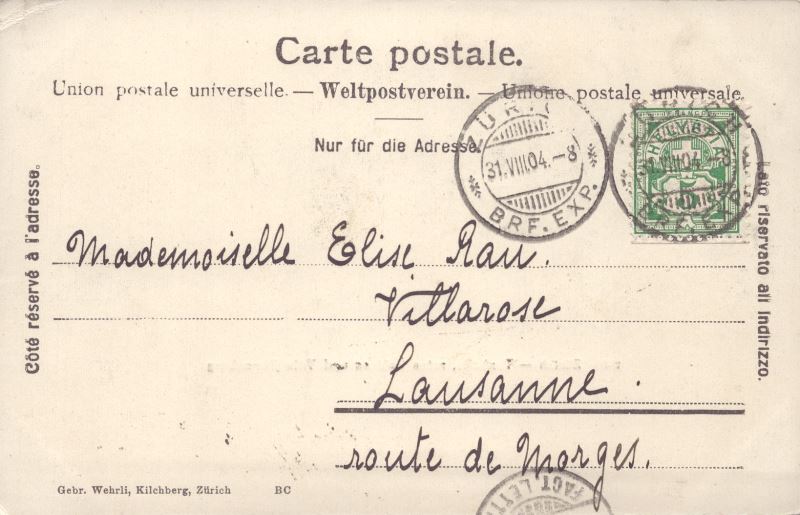 Carte postale.
Union postale universelle. — Weltpostverein. — Unione postale universale.
Nur für die Adresse.
ZÜRICH
31.VIII.04.-8
BRF. EXP.
HELVETIA
FRANCO
5
Côté réservé à l'adresse.
Lato riservato all indirizzo.
Mademoiselle Elise Rau.
Villarose
Lausanne.
route de Morges.
Gebr. Wehrli, Kilchberg, Zürich BC
FACT. LETT